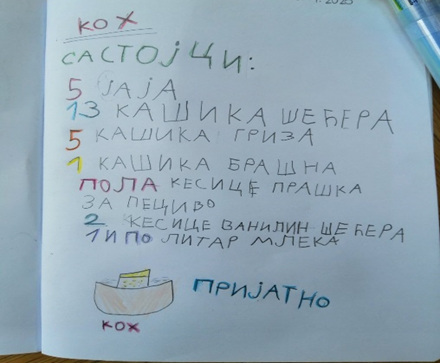 КОХ
САСТОЈЦИ:
5 ЈАЈА
13 КАШИКА ШЕЋЕРА
5 КАШИКА ГРИЗА
1 КАШИКА БРАШНА
ПОЛА КЕСИЦЕ ПРАШКА
ЗА ПЕЦИВО
2 КЕСИЦЕ ВАНИЛИН ШЕЋЕРА
1 И ПО ЛИТАР МЛЕКА
ПРИЈАТНО
КОХ